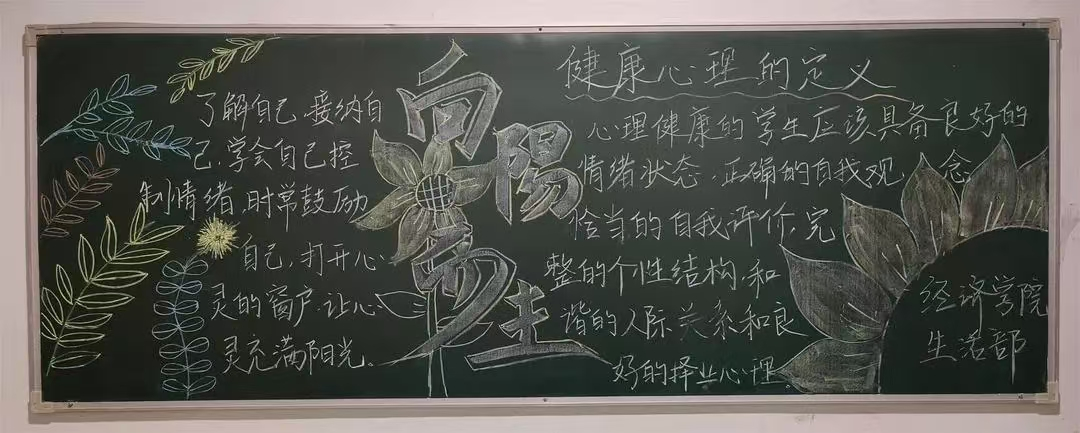 了解自己.接纳自
己.学会自己控
制情绪.时常鼓励
自己.打开心
灵的窗户.让心
灵充满阳光。
向陽
而生
健康心理的定义
心理健康的学生应该具备良好的
情绪状态.正确的自我观念
恰当的自我评价.完
整的个性结构.和
谐的人际关系和良
好的择业心理.
经济学院
生活部